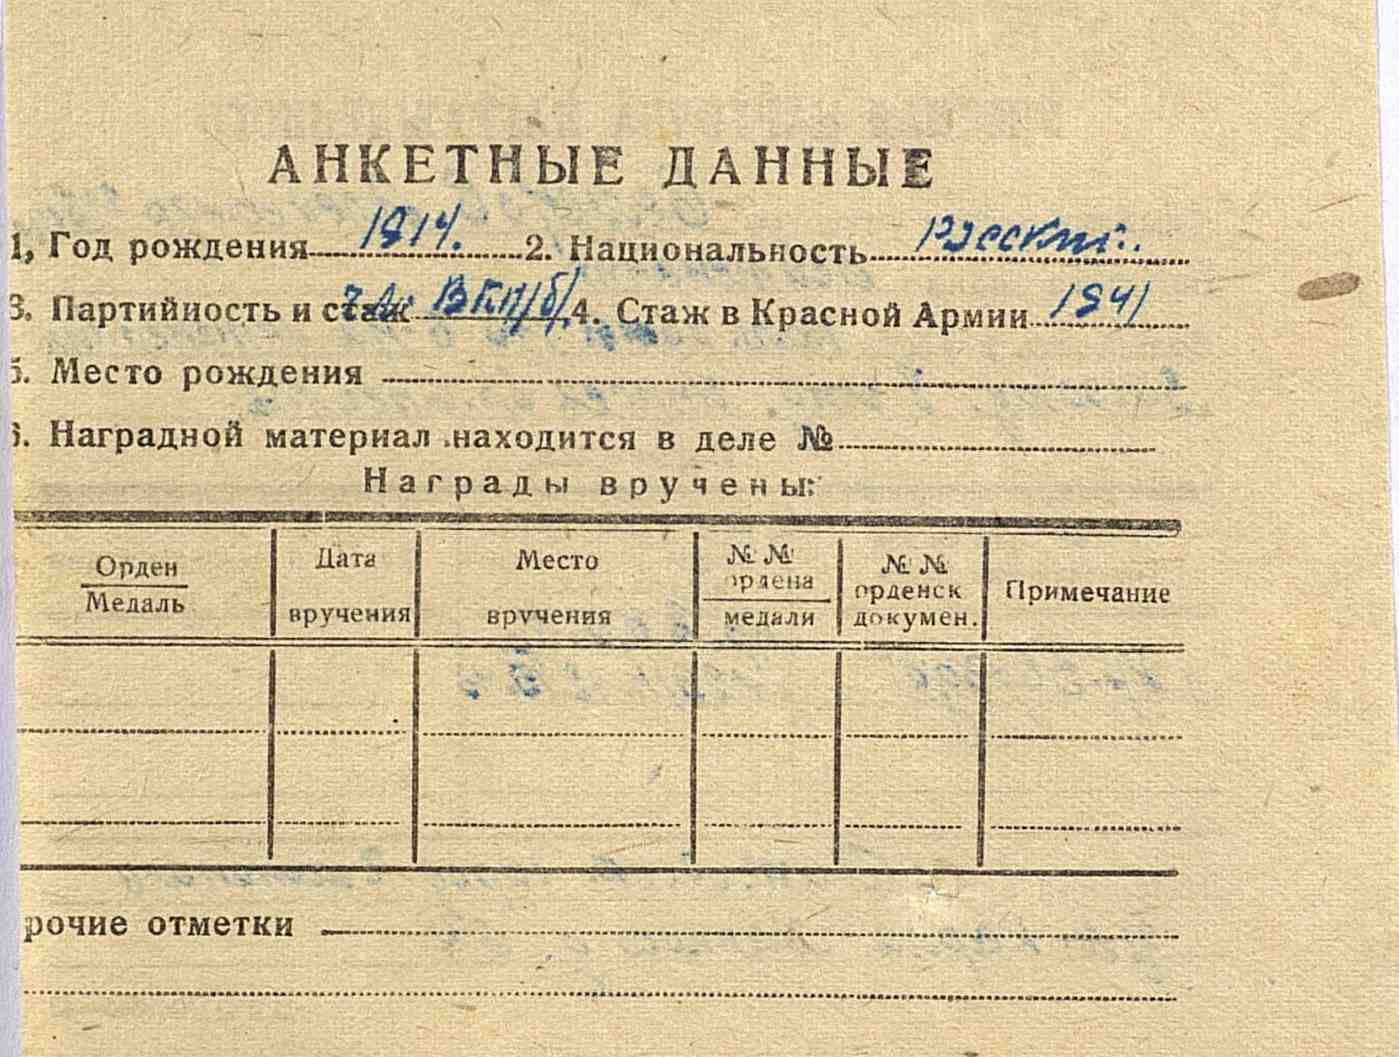 АНКЕТНЫЕ ДАННЫЕ
1, Год рождения 1914. 2. Национальность Русский.
3. Партийность и стаж чл. ВКП/б/. 4. Стаж в Красной Армии 1941
5. Место рождения
6. Наградной материал находится в деле №
Награды вручены:
Орден
Медаль
Дата
вручения
Место
вручения
№ №
ордена
медали
№ №
орденск
докумен.
Примечание
рочие отметки